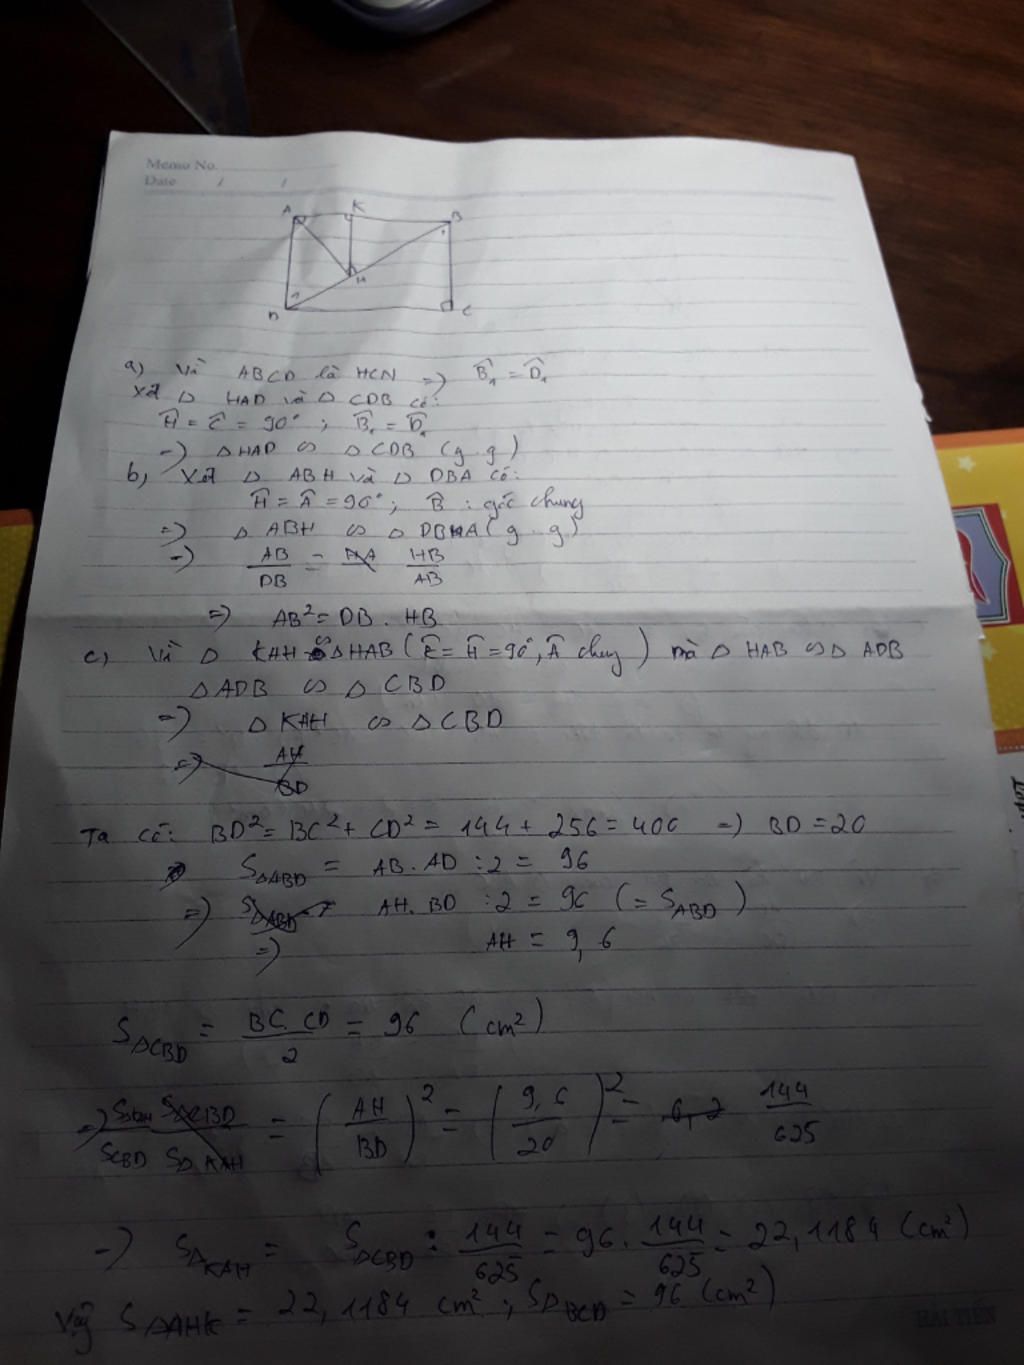 Memo No.
Date / /
A K B
1
H
1
D C
a) Vì ABCD là HCN => B̂₁ = D̂₁
Xét △ HAD và △ CDB có:
Ĥ = Ĉ = 90° ; B̂₁ = D̂₁
=> △HAD ∽ △CDB (g g)
b, Xét △ ABH và △ DBA có:
Ĥ = Â = 90° ; B̂ : góc chung
=> △ ABH ∽ △ DBA (g . g)
=> AB/DB = HB/AB
=> AB² = DB . HB
c, Vì △ KAH ∽ △HAB (K̂ = Ĥ = 90°, Â chung) mà △ HAB ∽ △ ADB
△ADB ∽ △ CBD
=> △ KAH ∽ △CBD
=> AH/BD
Ta có: BD² = BC² + CD² = 144 + 256 = 400 => BD = 20
S△ABD = AB . AD : 2 = 96
=> AH . BD : 2 = 96 (= SABD)
=> AH = 9,6
S△CBD = BC.CD/2 = 96 (cm²)
=> SKAH/SCBD = (AH/BD)² = (9,6/20)² = 144/625
=> S△KAH = S△CBD : 144/625 = 96 . 144/625 = 22,1184 (cm²)
Vậy S△AHK = 22,1184 cm² ; S△BCD = 96 (cm²)
HẢI TIẾN